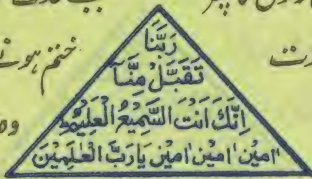 رَبَّنَا
تَقَبَّلْ مِنَّا
اِنَّكَ اَنْتَ السَّمِيْعُ الْعَلِيْمُ
اٰمين اٰمين اٰمين يَا رَبَّ الْعٰلَمِيْنَ
ختم ہونے